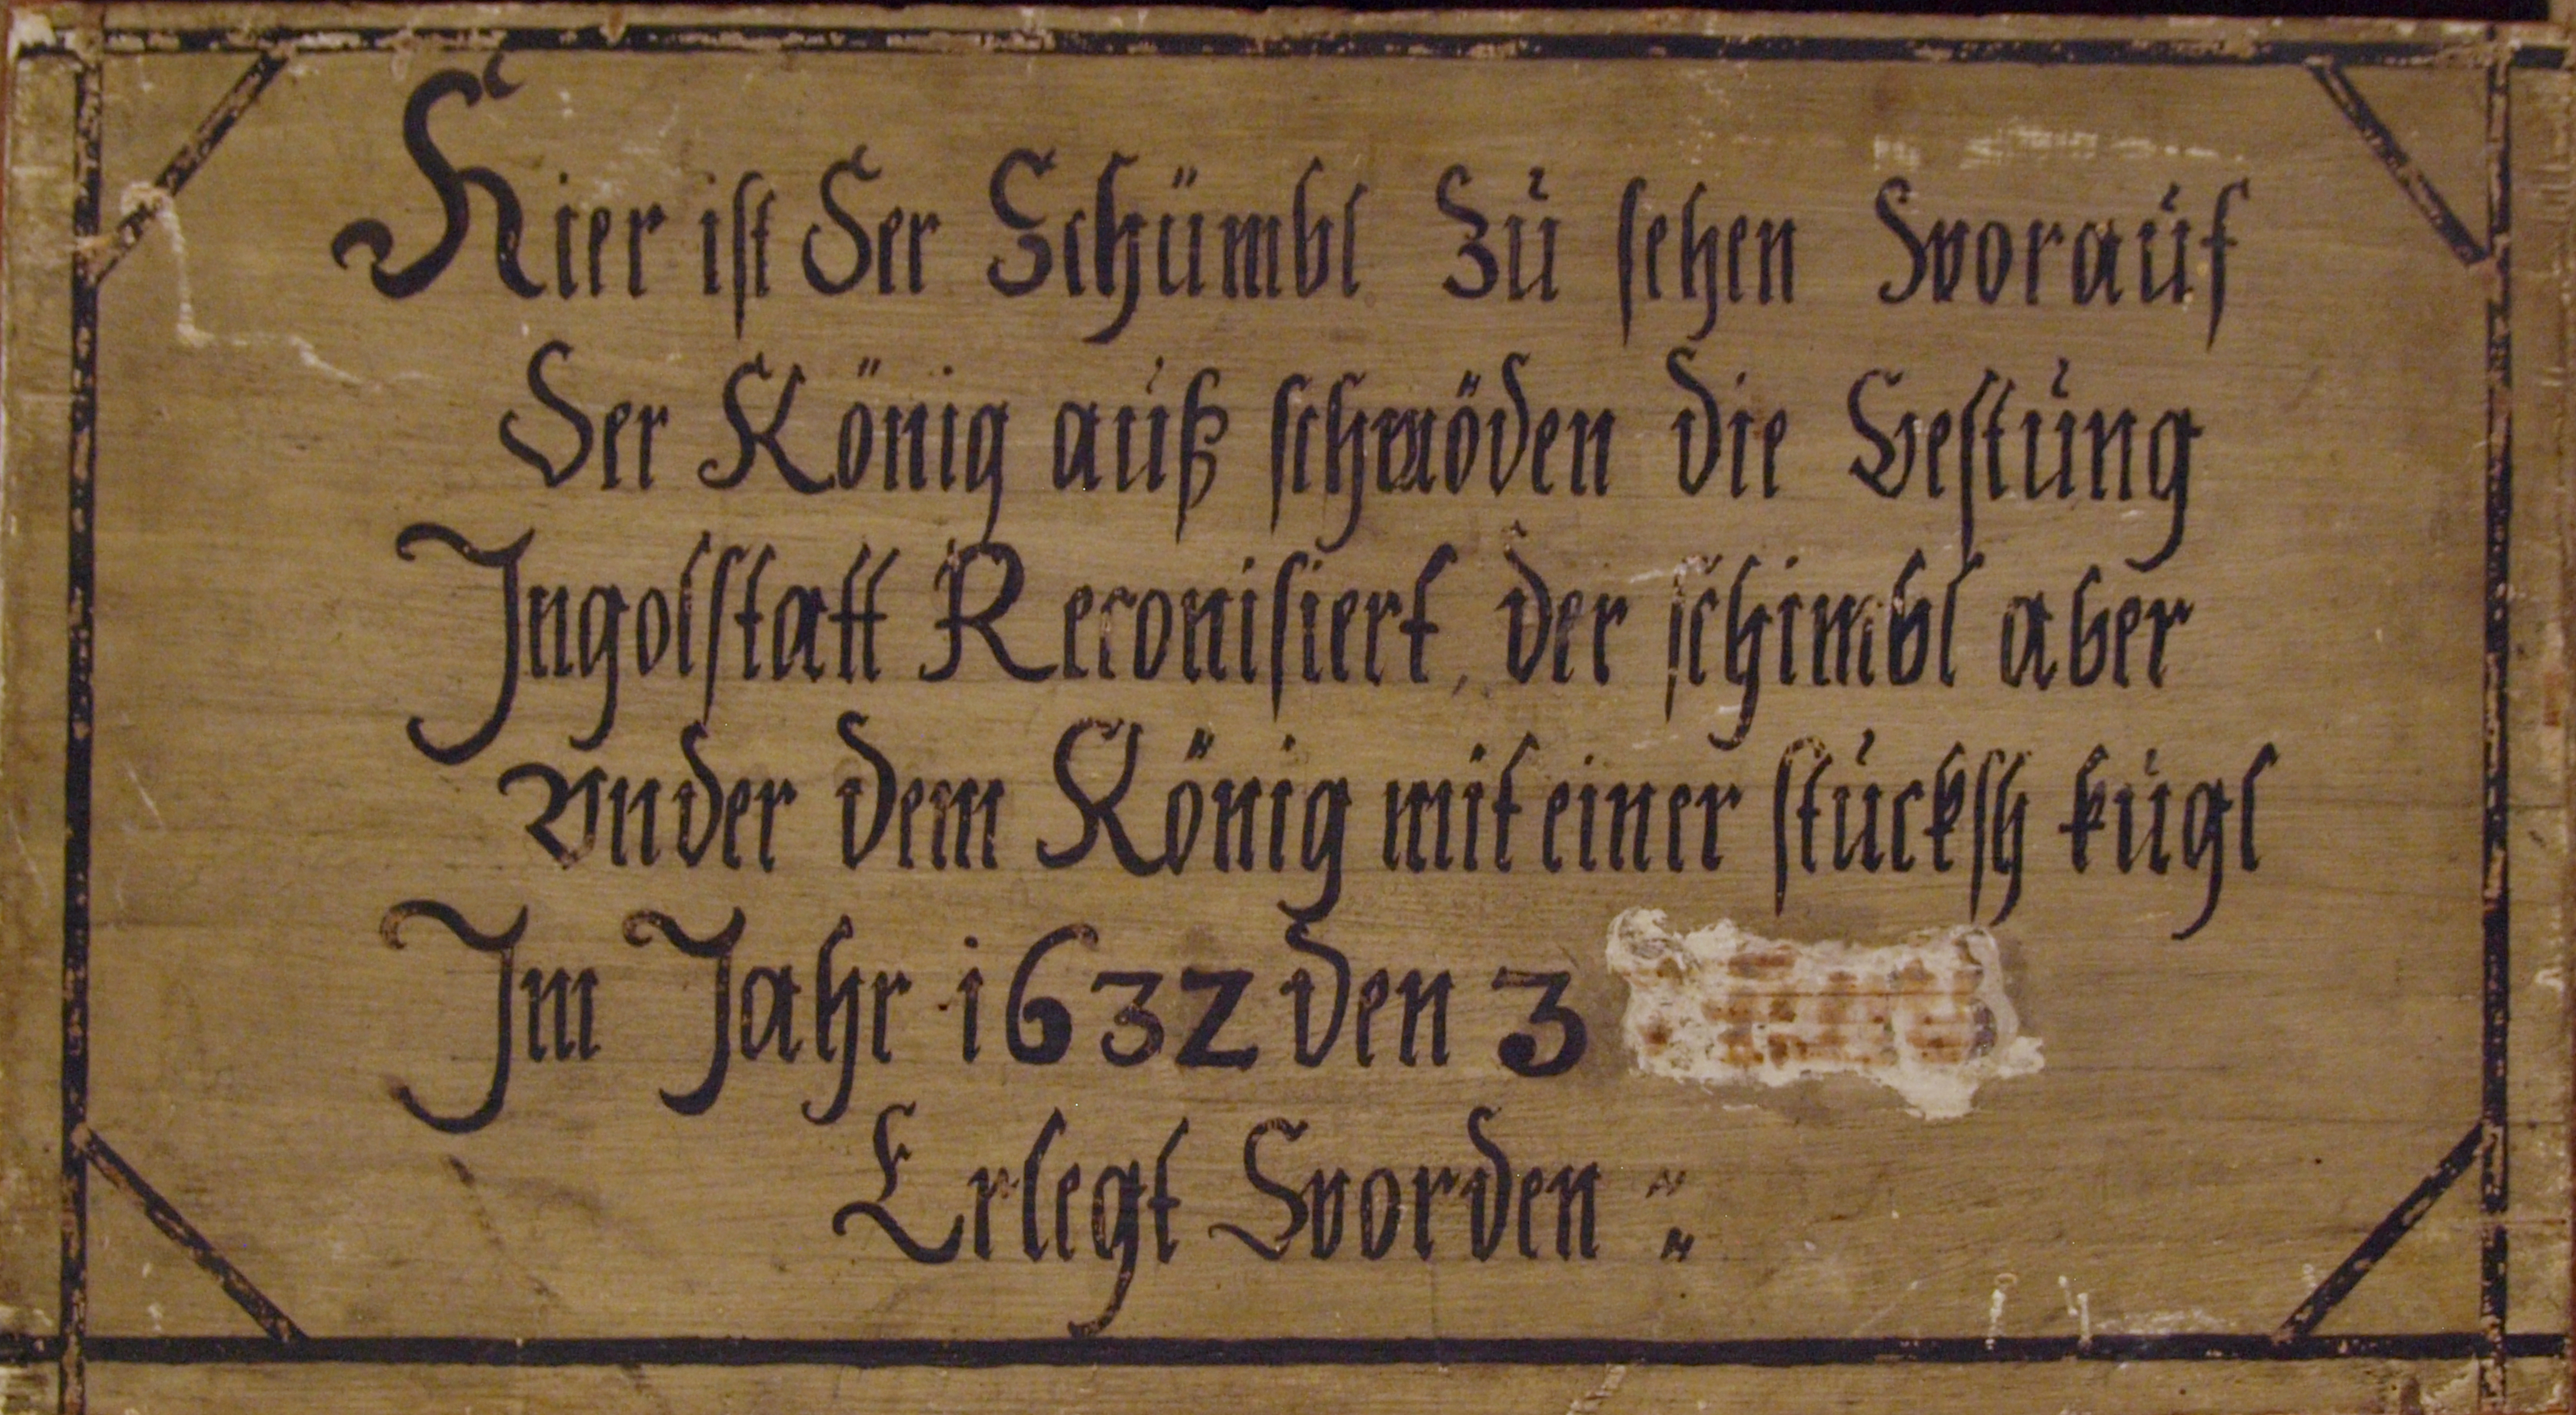 Hier ist Der Schümbl Zu sehen Worauf
Der König auß schwöden die Vestung
Ingolstatt Reconisiert, der schimbl aber
Vnder dem König mit einer stucksh kugl
Im Jahr 1632 den 3
Erlegt Worden